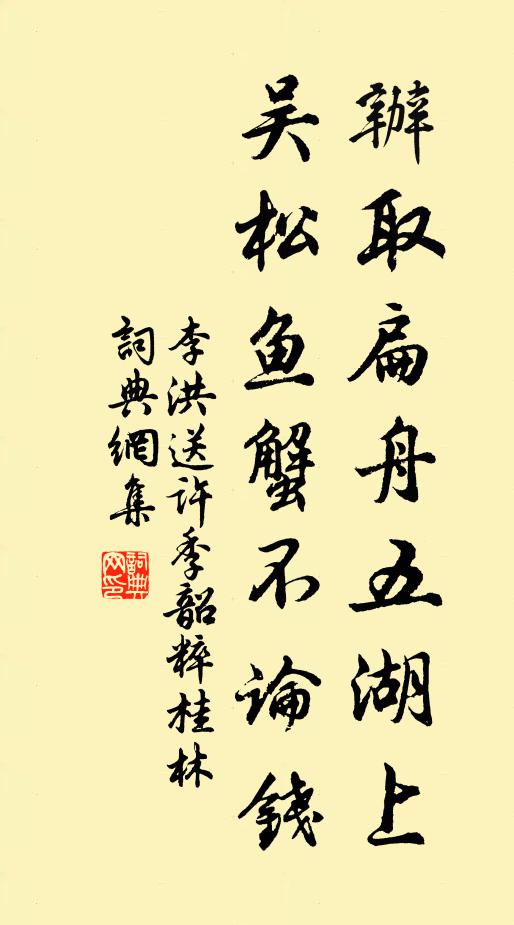 辦取扁舟五湖上
吴松鱼蟹不論錢
李洪送许季韶粹桂林
詞典網集
詞典网印